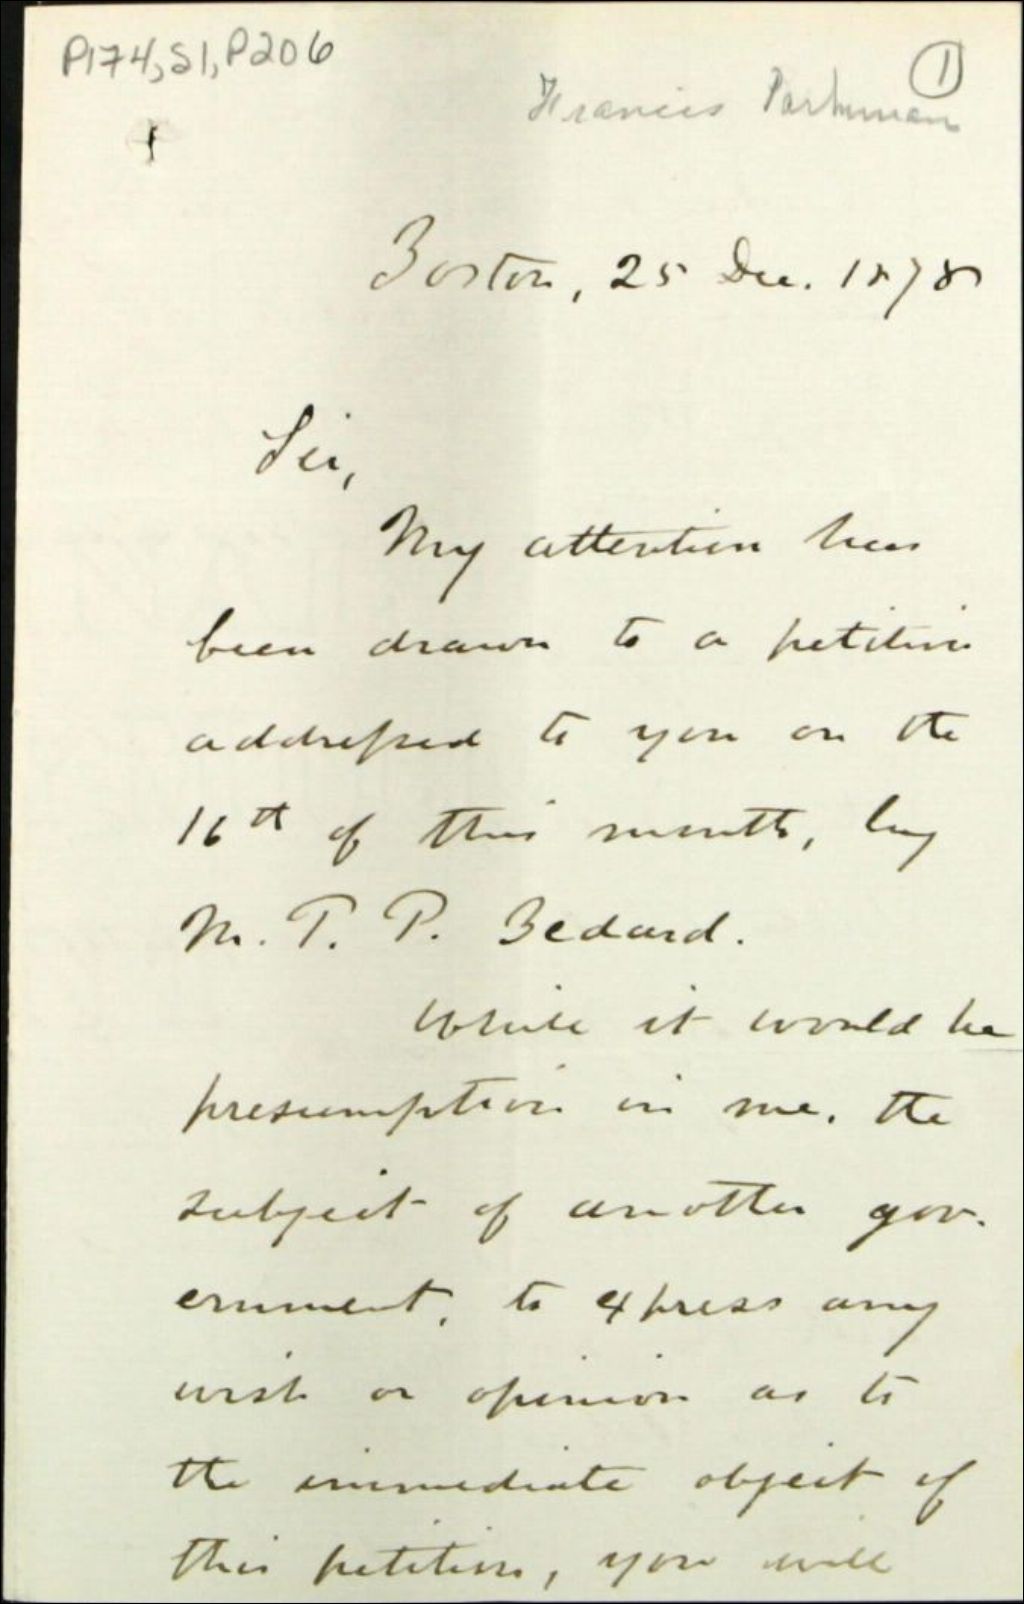 P174,S1,P206
1
Francis Parkman
Boston, 25 Dec. 1878
Sir,
My attention has
been drawn to a petition
addressed to you on the
16th of this month, by
M. T. P. Bedard.
While it would be
presumption in me, the
subject of another gov-
ernment, to express any
wish or opinion as to
the immediate object of
this petition, you will